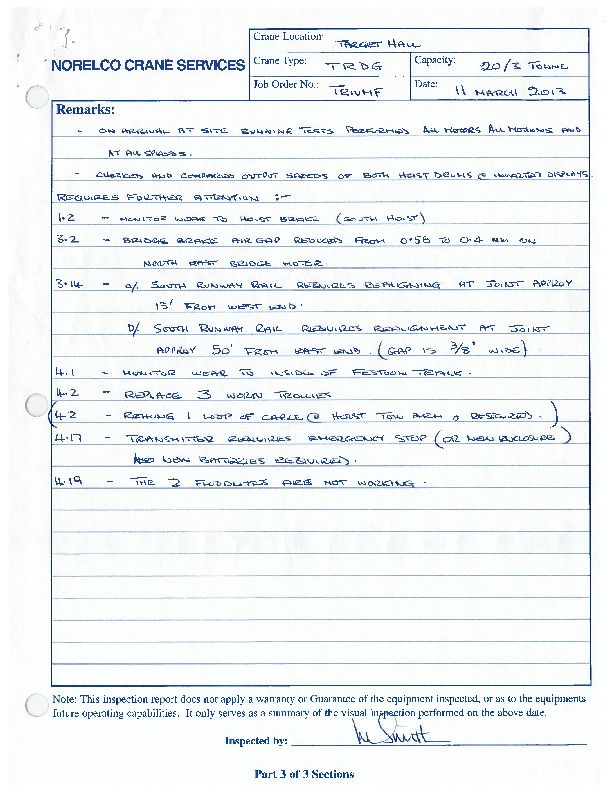 Crane Location: TARGET HALL
NORELCO CRANE SERVICES
Crane Type: TRDG
Capacity: 20/3 TONNE
Job Order No.: TRIUMF
Date: 11 MARCH 2013
Remarks:
- ON ARRIVAL AT SITE RUNNING TESTS PERFORMED ALL MOTORS ALL MOTIONS AND
AT ALL SPEEDS.
- CHECKED AND COMPARED OUTPUT SPEEDS OF BOTH HOIST DRUMS @ INVERTER DISPLAYS.
REQUIRES FURTHER ATTENTION :-
1.2 - MONITOR WEAR TO HOIST BRAKE (SOUTH HOIST)
3.2 - BRIDGE BRAKE AIR GAP REDUCED FROM 0.56 TO 0.4 MM ON
NORTH EAST BRIDGE MOTOR.
3.14 - a/ SOUTH RUNWAY RAIL REQUIRES REALIGNING AT JOINT APPROX
15' FROM WEST END.
b/ SOUTH RUNWAY RAIL REQUIRES REALIGNMENT AT JOINT
APPROX 50' FROM EAST END. (GAP IS 3/8" WIDE)
4.1 - MONITOR WEAR TO INSIDE OF FESTOON TRACK.
4.2 - REPLACE 3 WORN TROLLIES
(4.2 - REHANG 1 LOOP OF CABLE (@ HOIST TOW ARM REQUIRED.)
4.17 - TRANSMITTER REQUIRES EMERGENCY STOP (OR NEW ENCLOSURE)
ALSO NEW BATTERIES REQUIRED).
4.19 - THE 2 FLOODLITES ARE NOT WORKING.
Note: This inspection report does not apply a warranty or Guarantee of the equipment inspected, or as to the equipments
future operating capabilities. It only serves as a summary of the visual inspection performed on the above date.
Inspected by: M Smith
Part 3 of 3 Sections